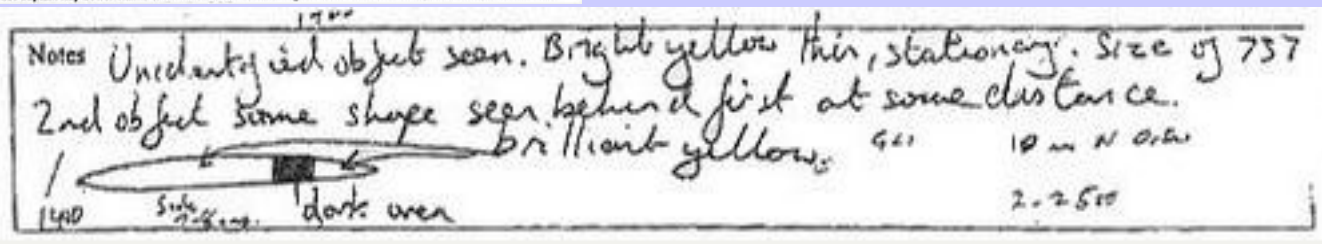 Notes Unidentified object seen. Bright yellow thin, stationary. Size of 737
2nd object same shape seen behind first at some distance.
brilliant yellow.
1410 dark area